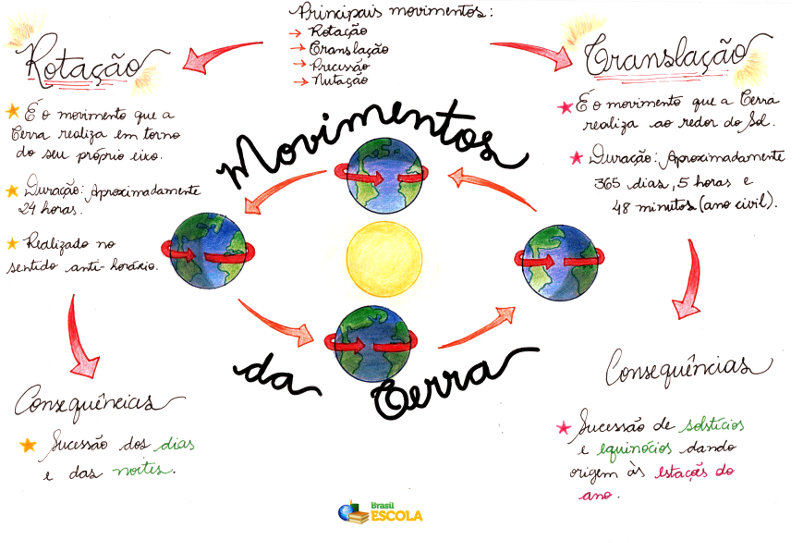 Principais movimentos:
→ Rotação
→ Translação
→ Precessão
→ Nutação
Rotação
É o movimento que a
Terra realiza em torno
do seu próprio eixo.
Duração: Aproximadamente
24 horas.
Realizado no
sentido anti-horário.
Consequências
Sucessão dos dias
e das noites.
Movimentos
da Terra
Translação
É o movimento que a Terra
realiza ao redor do Sol.
Duração: Aproximadamente
365 dias, 5 horas e
48 minutos (ano civil).
Consequências
Sucessão de solstícios
e equinócios dando
origem às estações do
ano.
Brasil
ESCOLA